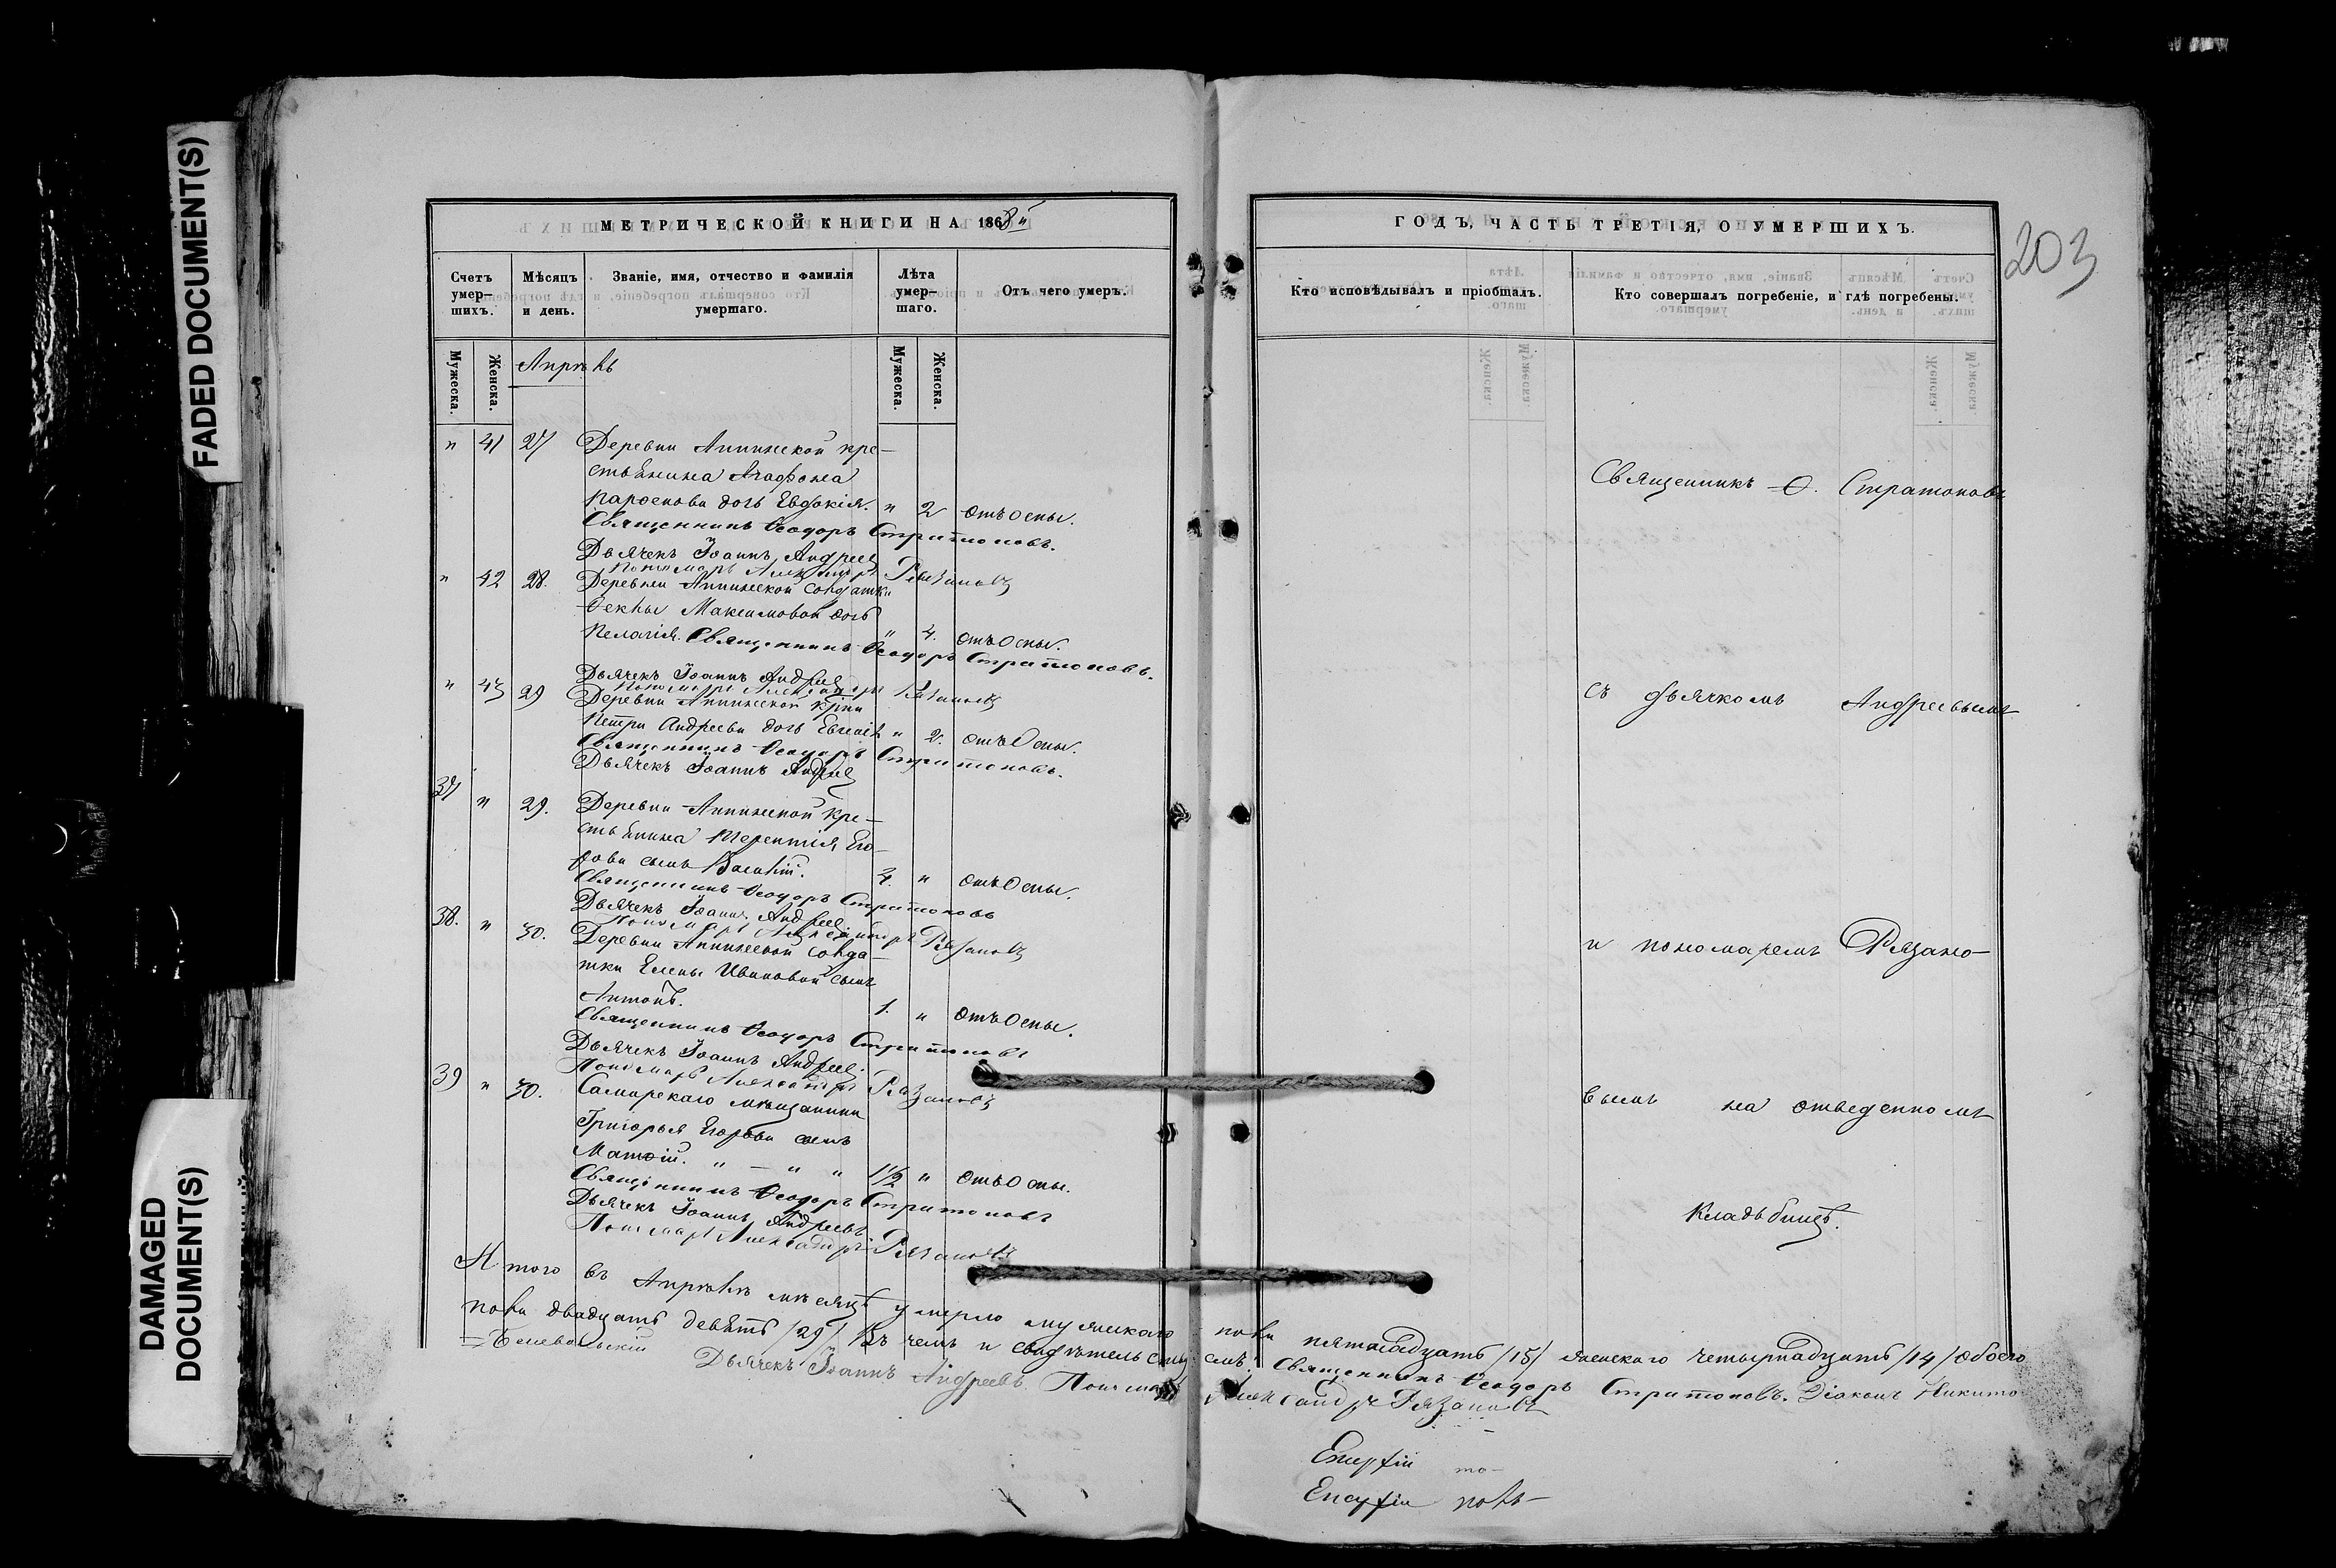 FADED DOCUMENT(S)
DAMAGED
DOCUMENT(S)
МЕТРИЧЕСКОЙ КНИГИ НА 1868й
Счетъ умер-шихъ.
Мѣсяцъ и день.
Званіе, имя, отчество и фамилія умершаго.
Лѣта умер-шаго.
Отъ чего умеръ.
Мужеска.
Женска.
Апрѣль
Мужеска.
Женска.
" 41 27 Деревни Аннинской кре-
стьянина Агафона
Парфенова дочь Евдокія. " 2 отъ оспы.
Священникъ Ѳеодоръ Стратоновъ.
Дьячекъ Іоаннъ Андреев
Пономарь Александръ Рязановъ
" 42 28. Деревни Аннинской солдатки
Ѳеклы Максимовой дочь
Пелагія. " 4. отъ Оспы.
Священникъ Ѳеодоръ Стратоновъ.
Дьячекъ Іоаннъ Андреев
Пономарь Александръ Рязановъ
" 43 29 Деревни Аннинской кр̃на
Петра Андреева дочь Евгенія " 2. отъ Оспы.
Священникъ Ѳеодоръ Стратоновъ.
Дьячекъ Іоаннъ Андреев
37 " 29. Деревни Аннинской кре-
стьянина Терентія Его-
рова сынъ Василій. 4. " отъ Оспы.
Священникъ Ѳеодоръ Стратоновъ
Дьячекъ Іоаннъ Андреев
Пономарь Александръ Рязановъ
38. " 30. Деревни Аннинской солда-
тки Елены Ивановой сынъ
Антонъ. 1. " отъ Оспы.
Священникъ Ѳеодоръ Стратоновъ
Дьячекъ Іоаннъ Андреев.
Пономарь Александръ Рязановъ
39 " 30. Самарскаго мѣщанина
Григорья Егорова сынъ
Матѳій. " — " " 1½ " отъ Оспы.
Священникъ Ѳеодоръ Стратоновъ
Дьячекъ Іоаннъ Андреевъ
Пономарь Александръ Рязановъ
Итого въ Апрѣлѣ мѣсяцѣ умерло мужескаго
пола двадцать девять /29/. Въ чемъ и свидѣтельствуемъ:
=Беневольскій Дьячекъ Іоаннъ Андреевъ. Пономарь
ГОДЪ, ЧАСТЬ ТРЕТІЯ, О УМЕРШИХЪ.
203
Кто исповѣдывалъ и пріобщалъ.
Кто совершалъ погребеніе, и гдѣ погребены.
Священникъ Ѳ. Стратоновъ
съ дьячкомъ Андреевымъ
и пономаремъ Рязано-
вымъ на отведенномъ
Кладбищѣ.
пола пятнадцать /15/ женскаго четырнадцать /14/ обоего
Священникъ Ѳеодоръ Стратоновъ. Діаконъ Никита
Александръ Рязановъ